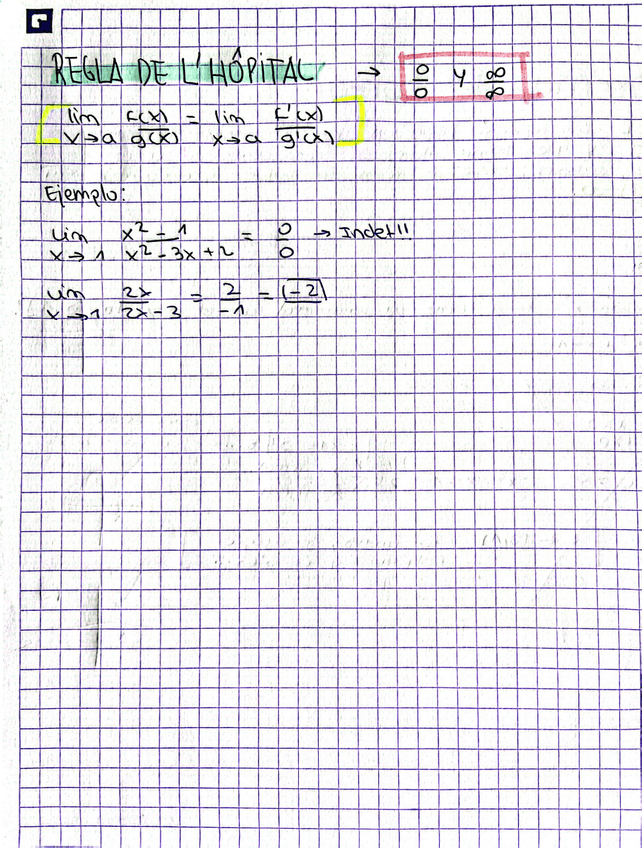 REGLA DE L'HÔPITAL → 0/0 y ∞/∞
lim x→a F(x)/g(x) = lim x→a F'(x)/g'(x)
Ejemplo:
lim x→1 x²-1/x²-3x+2 = 0/0 → Indet!!
lim x→1 2x/2x-3 = 2/-1 = -2